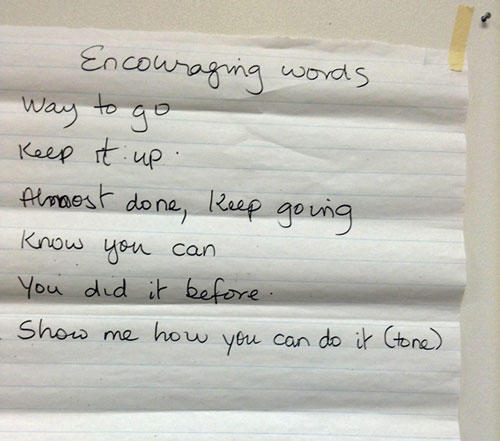 Encouraging words
Way to go
Keep it up.
Almost done, keep going
Know you can
You did it before.
Show me how you can do it (tone)